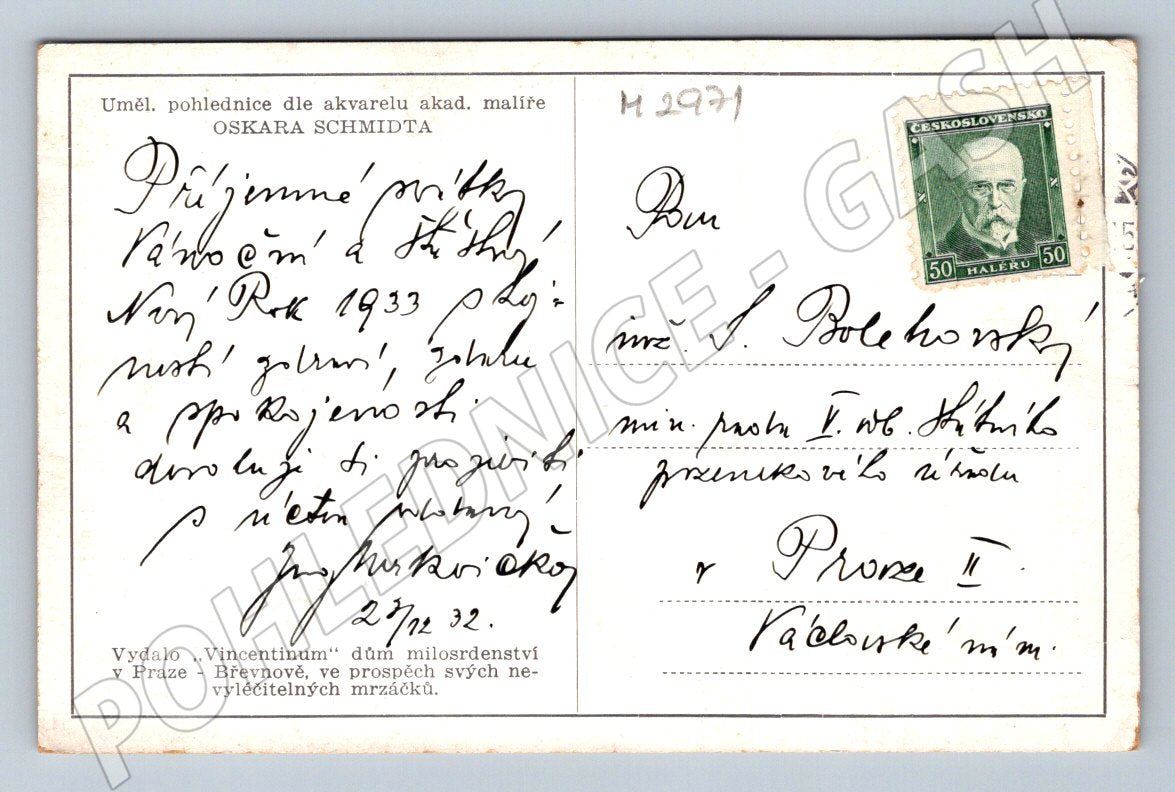 Uměl. pohlednice dle akvarelu akad. malíře
OSKARA SCHMIDTA
Příjemné svátky
Vánoční a šťastný
Nový Rok 1933 s hoj-
ností zdraví, zdaru
a spokojenosti
dovoluji si projeviti
s úctou oddaný
23/12 32.
Vydalo „Vincentinum" dům milosrdenství
v Praze - Břevnově, ve prospěch svých ne-
vyléčitelných mrzáčků.
M 2971
ČESKOSLOVENSKO
50 HALÉRŮ 50
Pan
inž. S. Bolehovský
min. rada V. odb. Státního
pozemkového úřadu
v Praze II.
Václavské nám.
POHLEDNICE - GASH